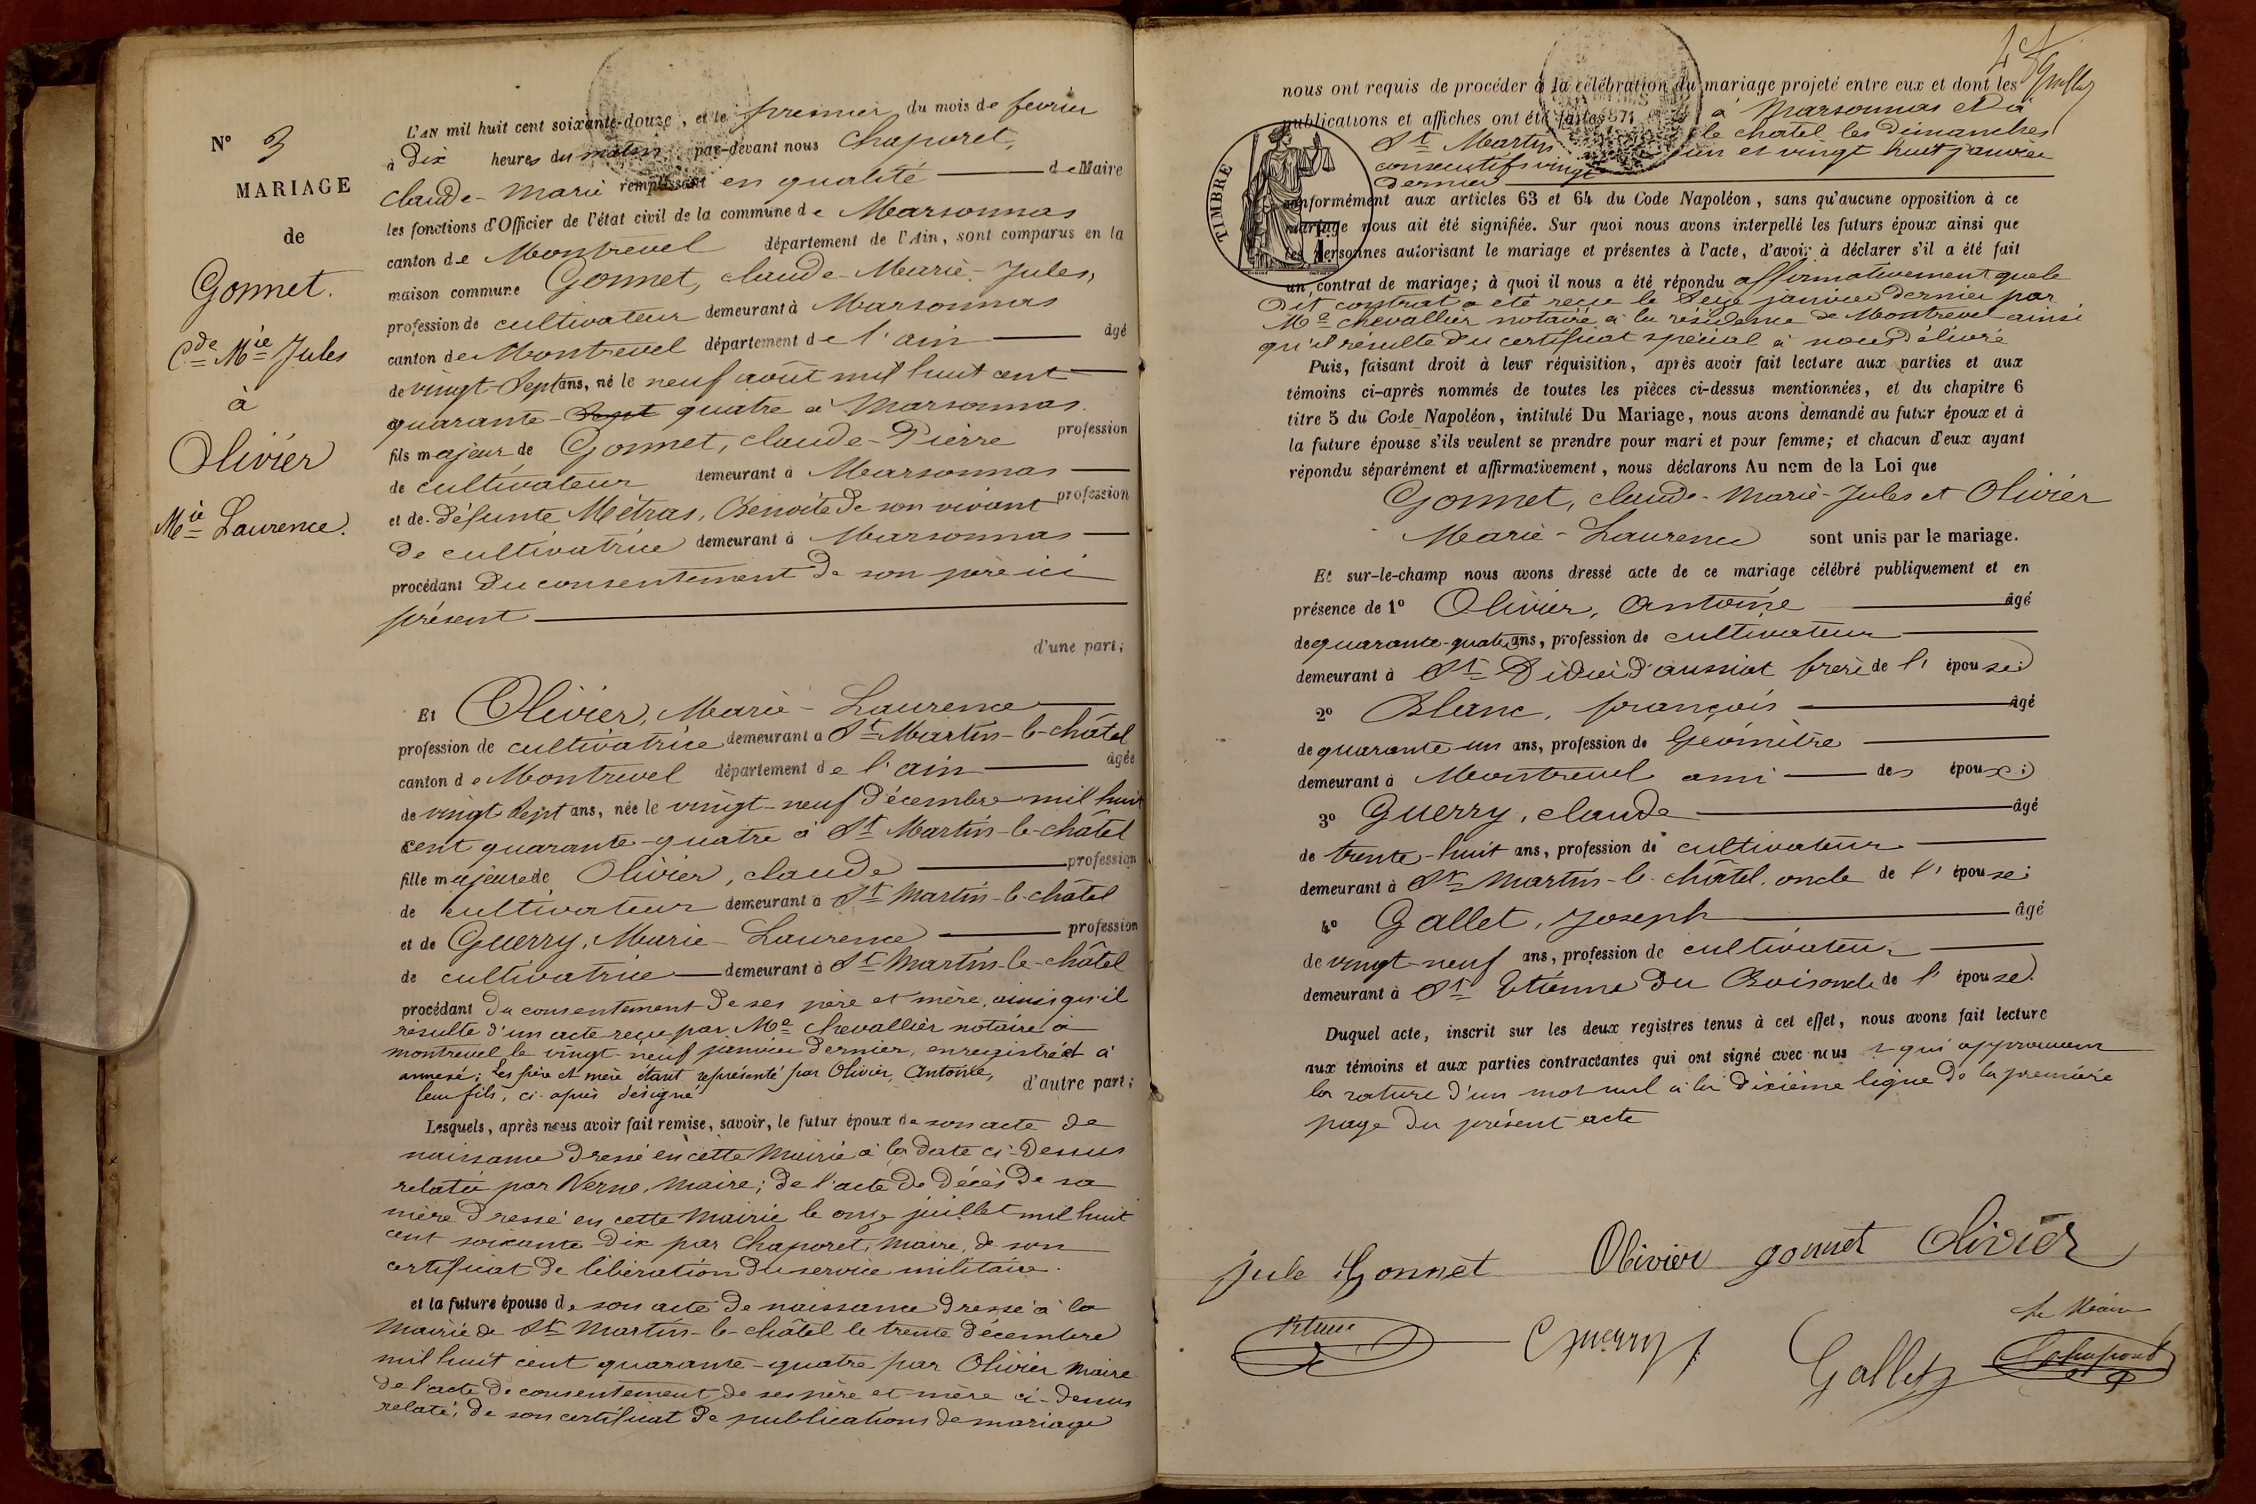 N° 3
MARIAGE
de
Gonnet.
Cde Mie Jules
à
Olivier
Mie Laurence.
L'AN mil huit cent soixante-douze, et le premier du mois de fevrier
à Dix heures du matin par-devant nous Chaporet,
Claude-Marie remplissant en qualité de Maire
les fonctions d'Officier de l'état civil de la commune de Marsonnas
canton de Montrevel département de l'Ain, sont comparus en la
maison commune Gonnet, Claude-Marie-Jules,
profession de cultivateur demeurant à Marsonnas
canton de Montrevel département de l'ain âgé
de vingt-Sept ans, né le neuf août mil huit cent
quarante-Sept quatre à Marsonnas.
fils majeur de Gonnet, Claude-Pierre profession
de cultivateur demeurant à Marsonnas
et de défunte Métras, Benoite de son vivant profession
de cultivatrice demeurant à Marsonnas
procédant du consentement de son père ici
présent
d'une part;
Et Olivier, Marie-Laurence
profession de cultivatrice demeurant à St Martin-le-châtel
canton de Montrevel département de l'ain âgée
de vingt Sept ans, née le vingt-neuf décembre mil huit
cent quarante-quatre à St Martin-le-châtel
fille majeure de Olivier, Claude profession
de cultivateur demeurant à St Martin-le-châtel
et de Guerry, Marie-Laurence profession
de cultivatrice demeurant à St Martin-le-châtel
procédant du consentement de ses père et mère, ainsi qu'il
résulte d'un acte reçu par Me Chevallier notaire à
montrevel le vingt-neuf janvier dernier, enregistré et à
annexé; Les père et mère étant représenté par Olivier, Antoine,
leur fils, ci-après désigné d'autre part;
Lesquels, après nous avoir fait remise, savoir, le futur époux de son acte de
naissance dressé en cette Mairie à la date ci-dessus
relatée par Verne, Maire; de l'acte de décès de sa
mère dressé en cette Mairie le onze juillet mil huit
cent soixante dix par Chaporet, Maire, & son
certificat de libération du service militaire.
et la future épouse de son acte de naissance dressé à la
Mairie de St Martin-le-châtel le trente décembre
mil huit cent quarante-quatre par Olivier Maire
de l'acte de consentement de ses père et mère ci-dessus
relaté, de son certificat de publications de mariage
nous ont requis de procéder à la célébration du mariage projeté entre eux et dont les
publications et affiches ont été faites à Marsonnas et à
St Martin le chatel les dimanches
consécutifs vingt un et vingt huit janvier
dernier
conformément aux articles 63 et 64 du Code Napoléon, sans qu'aucune opposition à ce
mariage nous ait été signifiée. Sur quoi nous avons interpellé les futurs époux ainsi que
les personnes autorisant le mariage et présentes à l'acte, d'avoir à déclarer s'il a été fait
un contrat de mariage; à quoi il nous a été répondu affirmativement que le
Dit contrat a été reçu le Seize janvier dernier par
Me chevallier notaire à la résidence de Montrevel ainsi
qu'il résulte du certificat spécial à nous délivré
TIMBRE
Puis, faisant droit à leur réquisition, après avoir fait lecture aux parties et aux
témoins ci-après nommés de toutes les pièces ci-dessus mentionnées, et du chapitre 6
titre 5 du Code Napoléon, intitulé Du Mariage, nous avons demandé au futur époux et à
la future épouse s'ils veulent se prendre pour mari et pour femme; et chacun d'eux ayant
répondu séparément et affirmativement, nous déclarons Au nom de la Loi que
Gonnet, Claude-Marie-Jules et Olivier
Marie-Laurence sont unis par le mariage.
Et sur-le-champ nous avons dressé acte de ce mariage célébré publiquement et en
présence de 1° Olivier, Antoine âgé
de quarante-quatre ans, profession de cultivateur
demeurant à St Didier d'aussiat frère de l'épouse;
2° Blanc, françois âgé
de quarante-un ans, profession de Géomètre
demeurant à Montrevel ami des époux;
3° Guerry, Claude âgé
de trente-huit ans, profession de cultivateur
demeurant à St Martin-le-châtel, oncle de l'épouse;
4° Gallet, Joseph âgé
de vingt-neuf ans, profession de cultivateur
demeurant à St Etienne du Bois oncle de l'épouse.
Duquel acte, inscrit sur les deux registres tenus à cet effet, nous avons fait lecture
aux témoins et aux parties contractantes qui ont signé avec nous & qui approuvent
la rature d'un mot nul à la dixième ligne de la première
page du présent acte
Jule Gonnet Olivier gonnet Olivier
Guerry Gallet Le Maire
Chaporet